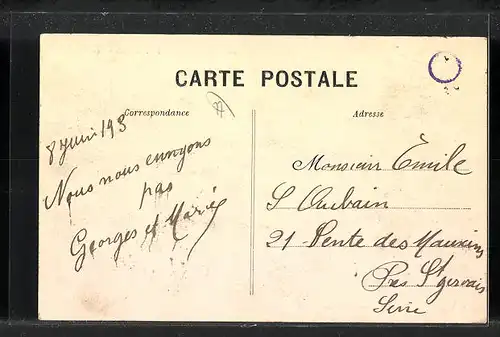 CARTE POSTALE
Correspondance
Adresse
8 Juin 193
Nous nous ennuyons
pas
Georges et Marie
Monsieur Émile
St Aubain
21 Sente des
Près St gervais
Seine